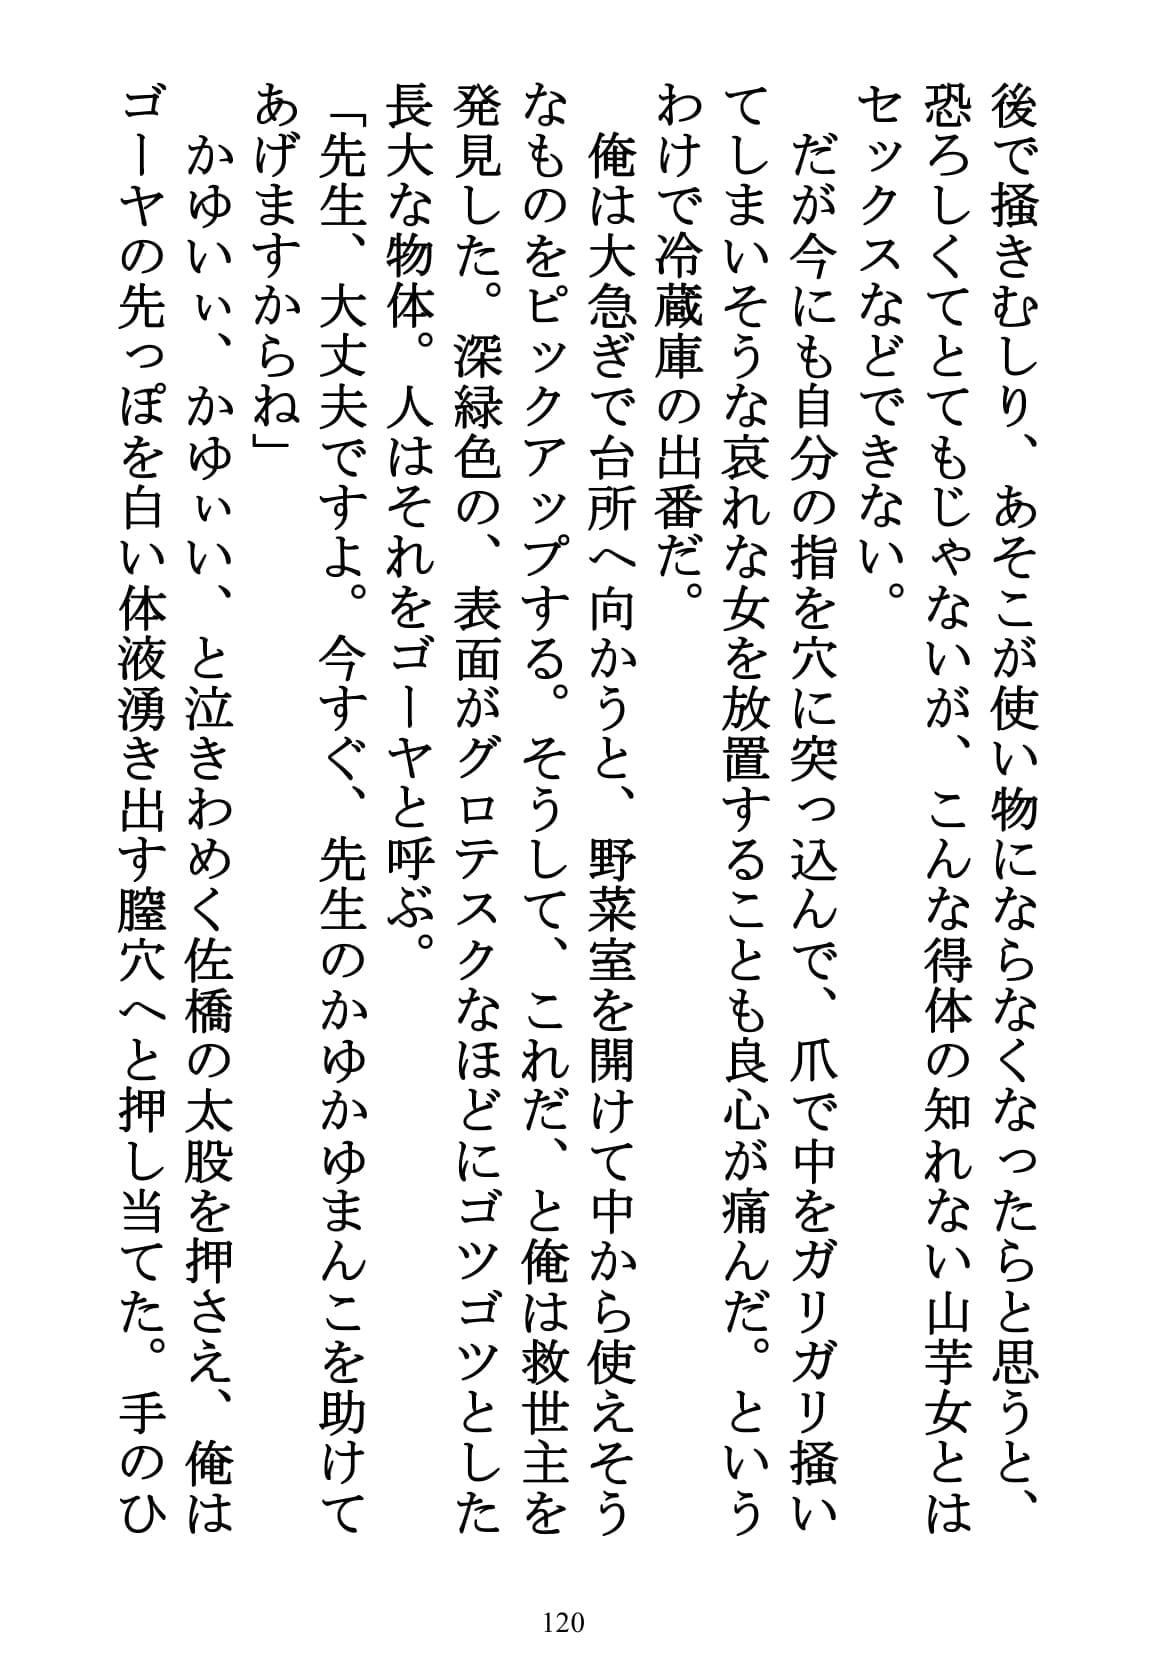 後で掻きむしり、あそこが使い物にならなくなったらと思うと、
恐ろしくてとてもじゃないが、こんな得体の知れない山芋女とは
セックスなどできない。
　だが今にも自分の指を穴に突っ込んで、爪で中をガリガリ掻い
てしまいそうな哀れな女を放置することも良心が痛んだ。という
わけで冷蔵庫の出番だ。
　俺は大急ぎで台所へ向かうと、野菜室を開けて中から使えそう
なものをピックアップする。そうして、これだ、と俺は救世主を
発見した。深緑色の、表面がグロテスクなほどにゴツゴツとした
長大な物体。人はそれをゴーヤと呼ぶ。
「先生、大丈夫ですよ。今すぐ、先生のかゆかゆまんこを助けて
あげますからね」
　かゆいぃ、かゆぃい、と泣きわめく佐橋の太股を押さえ、俺は
ゴーヤの先っぽを白い体液湧き出す膣穴へと押し当てた。手のひ
120